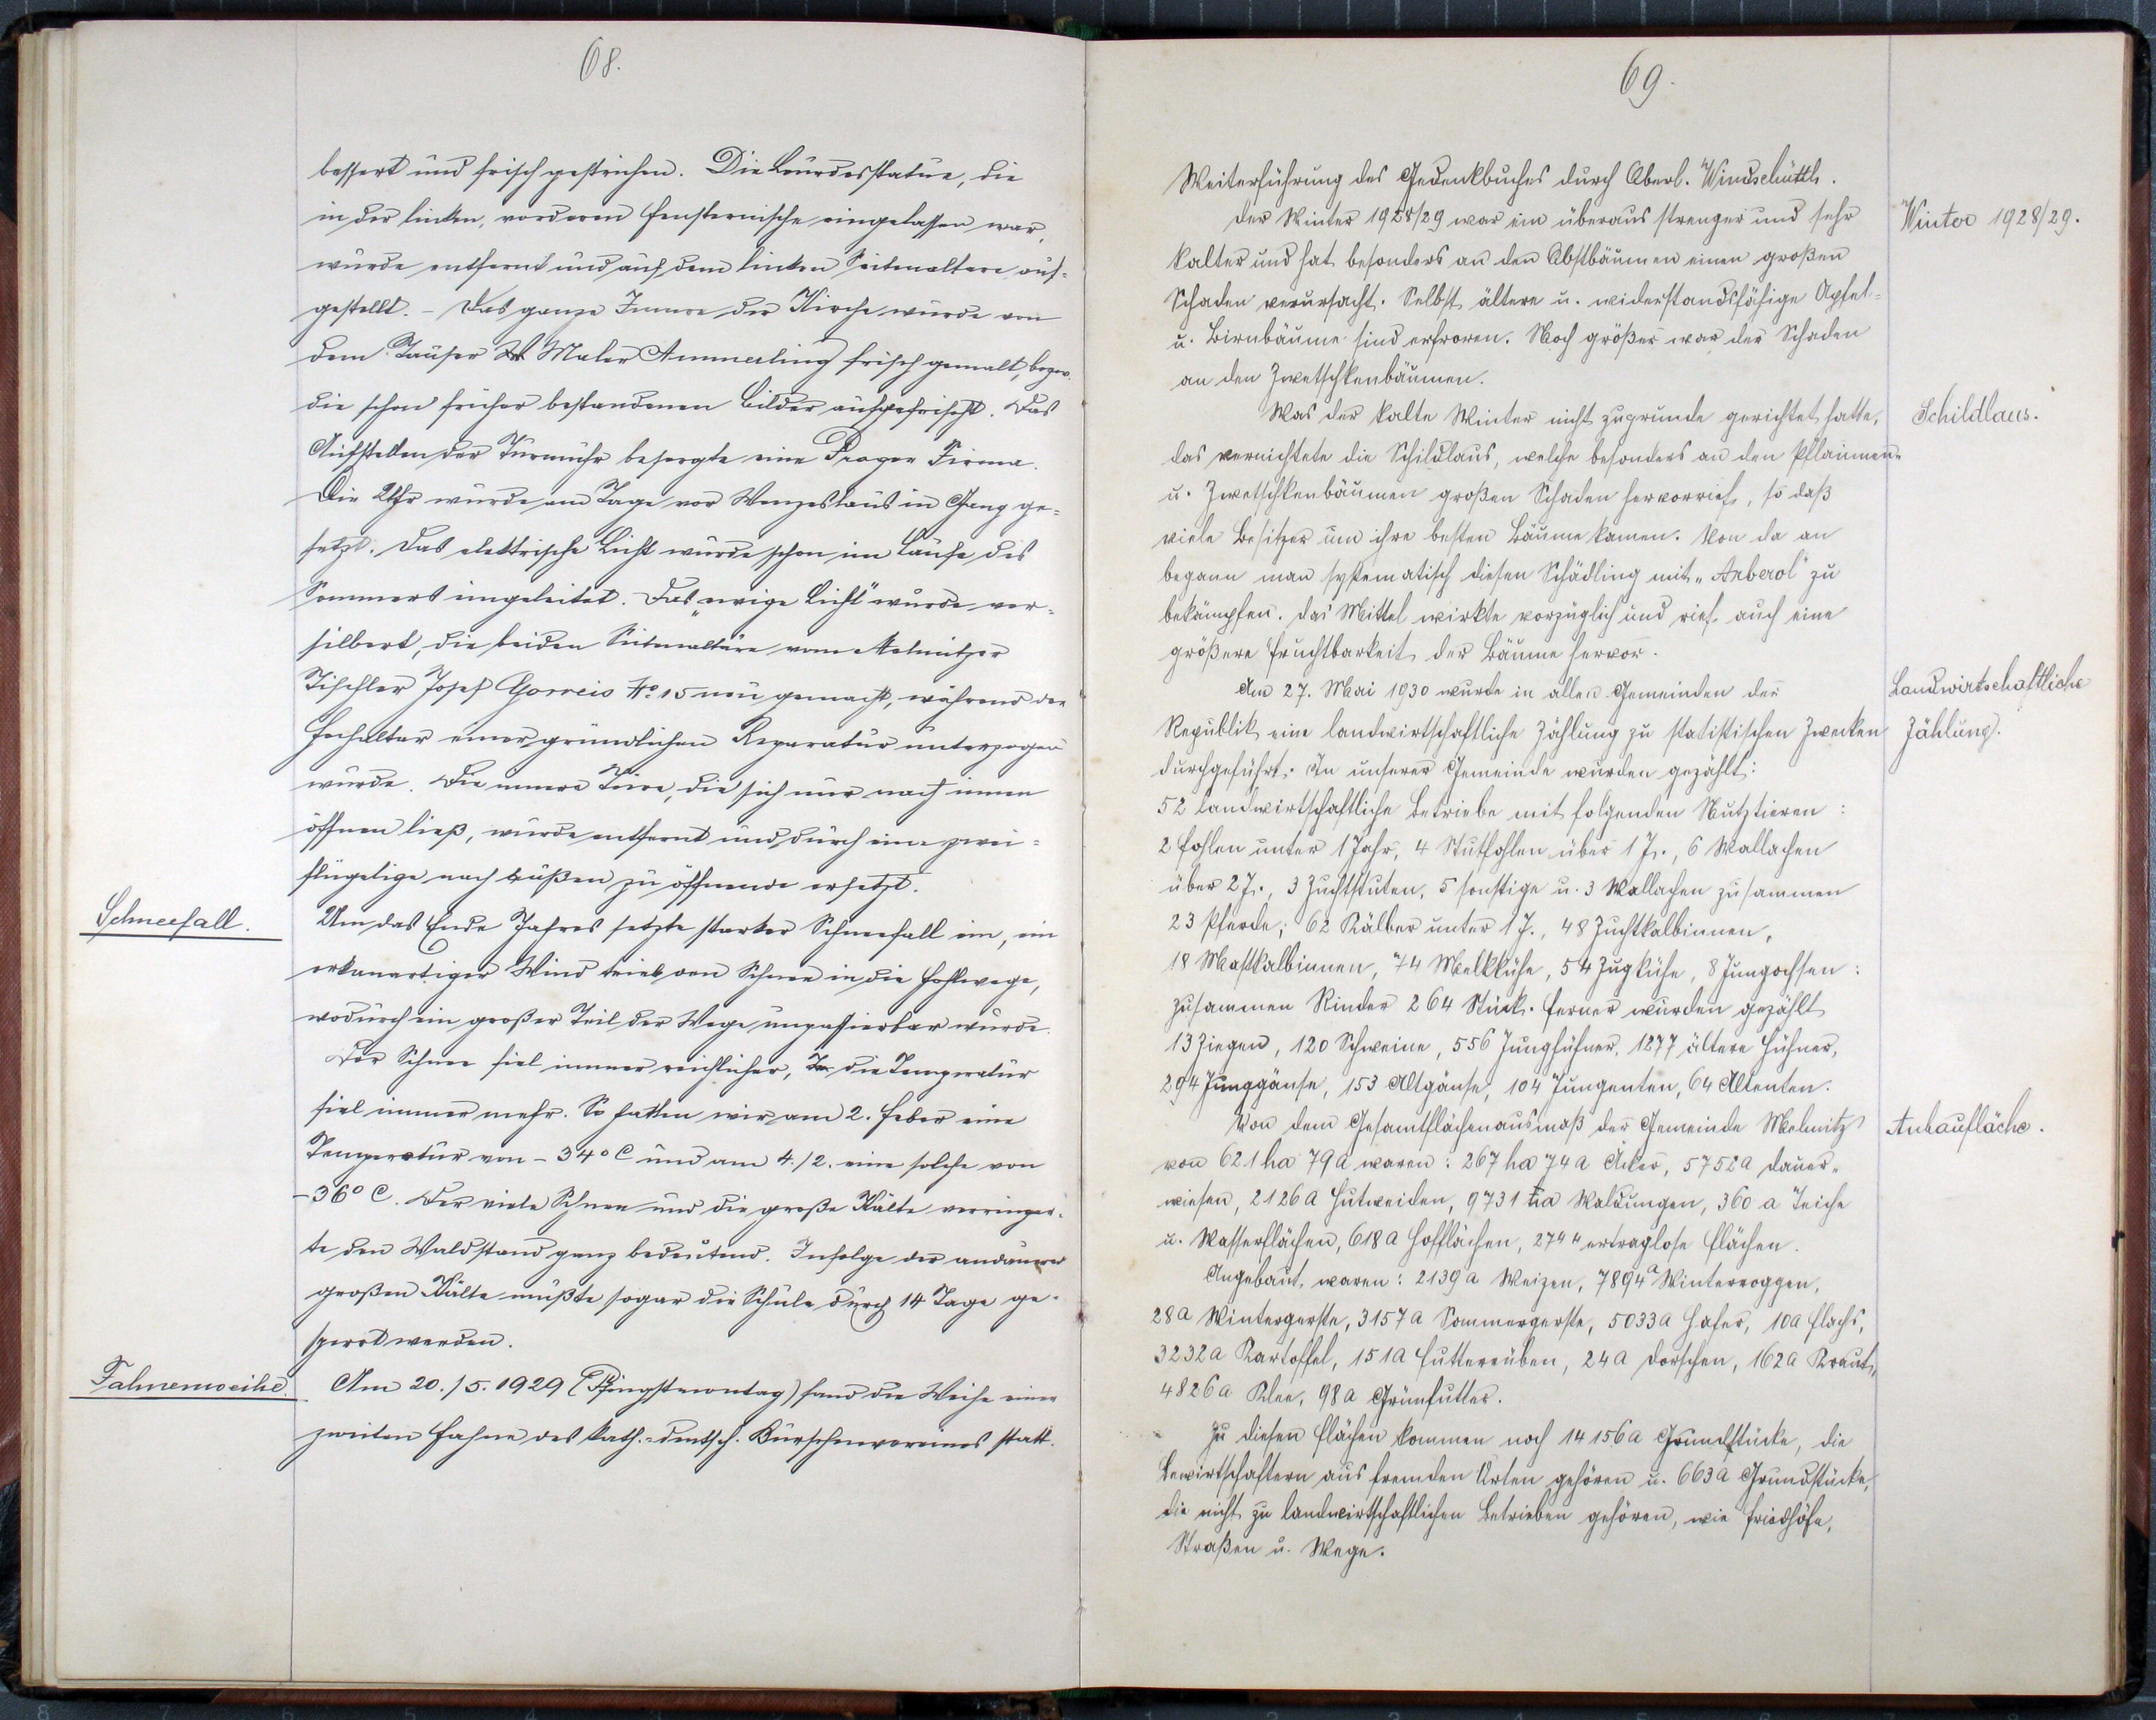 68.
bessert und frisch gestrichen. Die Lourdesstatue, die
in der linken, vorderen Fensternische eingelassen war,
wurde entfernt und auf dem linken Seitenaltare auf-
gestellt. – Das ganze Innere der Kirche wurde von
dem Tauser Maler Ammerling frisch gemalt, bezw.
die schon früher bestandenen Bilder aufgefrischt. Das
Aufstellen der Turmuhr besorgte eine Prager Firma.
Die Uhr wurde am Tage vor Wenzeslaus in Gang ge-
setzt. Das elektrische Licht wurde schon im Laufe des
Sommers eingeleitet. Das „ewige Licht" wurde ver-
silbert, die beiden Seitenaltäre vom Melmitzer
Tischler Josef Gorreis No. 15 neu gemacht, während der
Hochaltar einer gründlichen Reparatur unterzogen
wurde. Die innere Türe, die sich nur nach innen
öffnen ließ, wurde entfernt und durch eine zwei-
flügelige nach außen zu öffnende ersetzt.
Schneefall.
Um das Ende Jahres setzte starker Schneefall ein, ein
orkanartiger Wind trieb den Schnee in die Hohlwege,
wodurch ein großer Teil der Wege unpassierbar wurde.
Der Schnee fiel immer reichlicher, die Temperatur
fiel immer mehr. So hatten wir am 2. Feber eine
Temperatur von – 34° C und am 4./2. eine solche von
– 36° C. Der viele Schnee und die große Kälte verringer-
te den Wildstand ganz bedeutend. Infolge der andauernd
großen Kälte mußte sogar die Schule durch 14 Tage ge-
sperrt werden.
Fahnenweihe.
Am 20./5. 1929 (Pfingstmontag) fand die Weihe einer
zweiten Fahne des kath.-deutsch. Burschenvereines statt.
69.
Weiterführung des Gedenkbuches durch Oberl. Windschüttl.
Winter 1928/29.
Der Winter 1928/29 war ein überaus strenger und sehr
kalter und hat besonders an den Obstbäumen einen großen
Schaden verursacht. Selbst ältere u. widerstandsfähige Apfel-
u. Birnbäume sind erfroren. Noch größer war der Schaden
an den Zwetschkenbäumen.
Schildlaus.
Was der kalte Winter nicht zugrunde gerichtet hatte,
das vernichtete die Schildlaus, welche besonders an den Pflaumen-
u. Zwetschkenbäumen großen Schaden hervorrief, so daß
viele Besitzer um ihre besten Bäume kamen. Von da an
begann man systematisch diesen Schädling mit „Arberol" zu
bekämpfen. Das Mittel wirkte vorzüglich und rief auch eine
größere Fruchtbarkeit der Bäume hervor.
Landwirtschaftliche
Zählung.
Am 27. Mai 1930 wurde in allen Gemeinden der
Republik eine landwirtschaftliche Zählung zu statistischen Zwecken
durchgeführt. In unserer Gemeinde wurden gezählt:
52 landwirtschaftliche Betriebe mit folgenden Nutztieren:
2 Fohlen unter 1 Jahr, 4 Stutfohlen über 1 J., 6 Wallachen
über 2 J., 3 Zuchtstuten, 5 sonstige u. 3 Wallachen zusammen
23 Pferde; 62 Kälber unter 1 J., 48 Zuchtkalbinnen,
18 Mastkalbinnen, 74 Melkkühe, 54 Zugkühe, 8 Jungochsen:
zusammen Rinder 264 Stück. Ferner wurden gezählt
13 Ziegen, 120 Schweine, 556 Junghühner, 1277 ältere Hühner,
294 Junggänse, 153 Altgänse, 104 Jungenten, 64 Altenten.
Anbaufläche.
Von dem Gesamtflächenausmaß der Gemeinde Melmitz
von 621 ha 79 a waren: 267 ha 74 a Äcker, 5752 a Dauer-
wiesen, 2126 a Hutweiden, 9731 a Waldungen, 360 a Teiche
u. Wasserflächen, 618 a Hofflächen, 274 " ertraglose Flächen.
Angebaut waren: 2139 a Weizen, 7894 a Winterroggen,
28 a Wintergerste, 3157 a Sommergerste, 5033 a Hafer, 10 a Flachs,
3232 a Kartoffel, 151 a Futterrüben, 24 a Dorschen, 162 a Kraut,
4826 a Klee, 98 a Grünfutter.
Zu diesen Flächen kommen noch 14156 a Grundstücke, die
Bewirtschaftern aus fremden Orten gehören u. 663 a Grundstücke,
die nicht zu landwirtschaftlichen Betrieben gehören, wie Friedhöfe,
Straßen u. Wege.